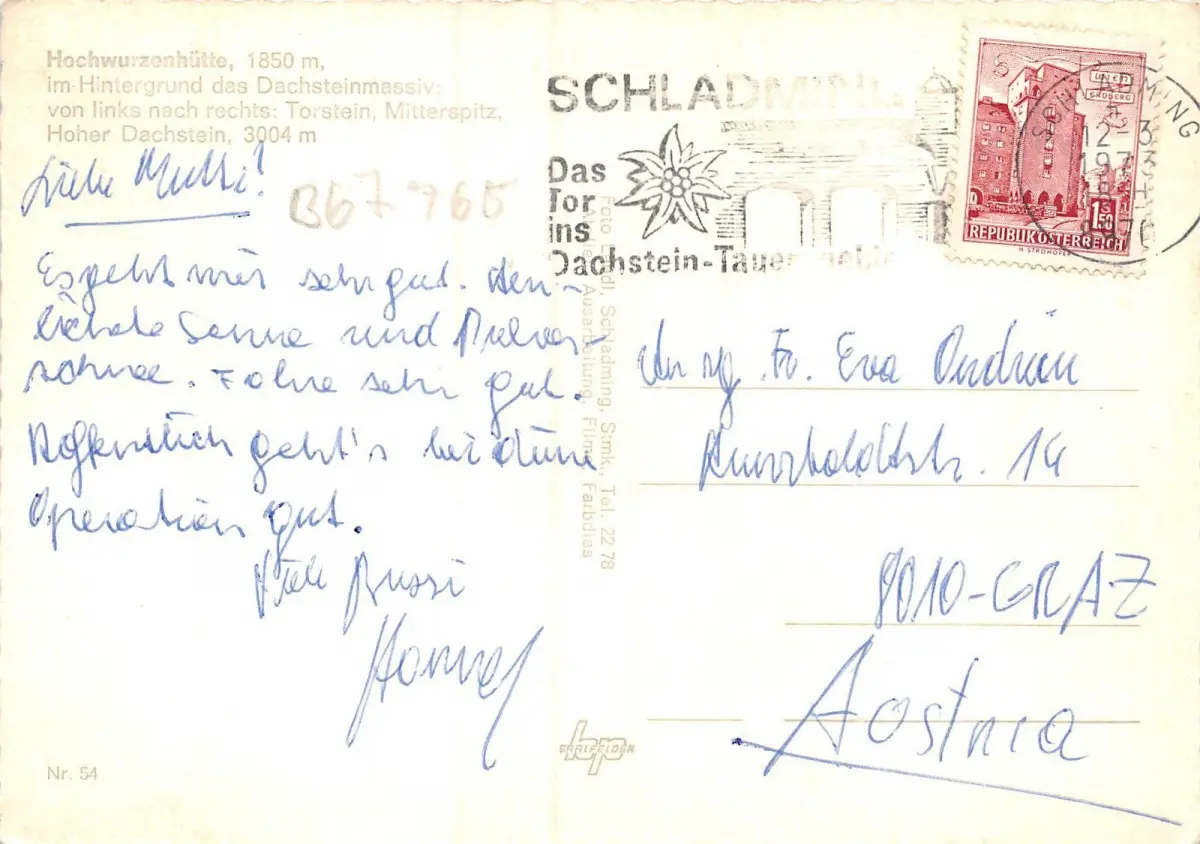 Hochwurzenhütte, 1850 m,
im Hintergrund das Dachsteinmassiv;
von links nach rechts: Torstein, Mitterspitz,
Hoher Dachstein, 3004 m
Liebe Mutti!
B67 765
Es geht mir sehr gut. Herr-
lichste Sonne und Pulver-
schnee. Fahre sehr gut.
Hoffentlich geht's bei deine
Operation gut.
Viele Bussi
Nr. 54
SCHLADMING
Das
Tor
ins
Dachstein-Tauerngebiet
Foto Schladming, Stmk., Tel. 22 78
Ausarbeitung, Filme, Farbdias
SAALFELDEN
WIEN
ERDBERG
1.50
REPUBLIK ÖSTERREICH
H. STROHOFER
SCHLADMING
12-3
197
8970
An Fr. Eva
Humboldtstr. 14
8010-GRAZ
Aostria